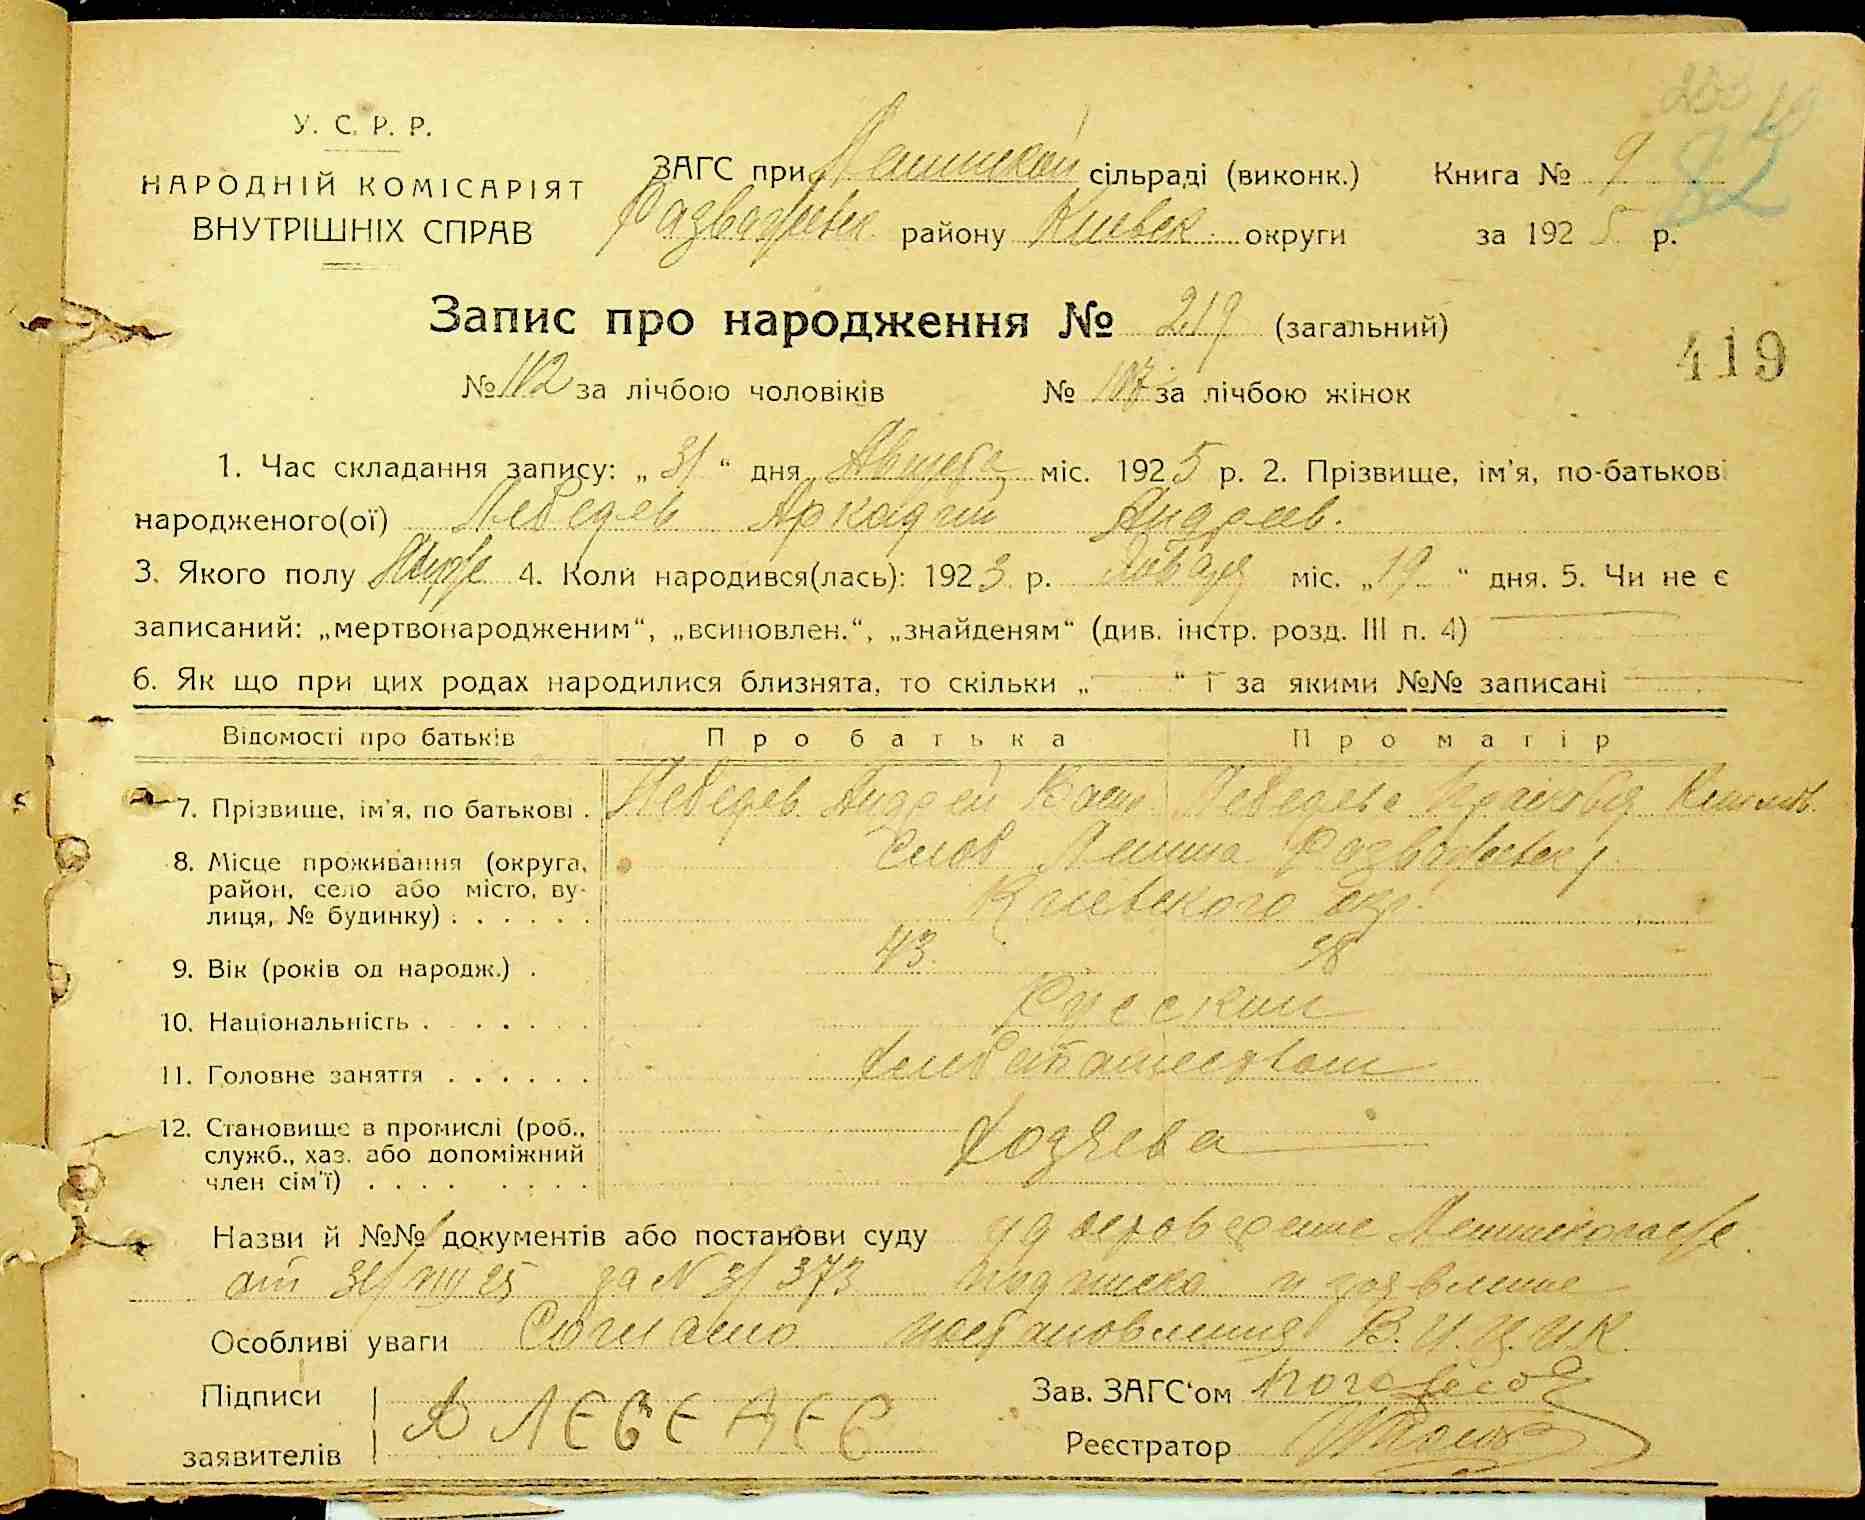 У. С. Р. Р.
НАРОДНІЙ КОМІСАРІЯТ
ВНУТРІШНІХ СПРАВ
ЗАГС при сільраді (виконк.) Книга № 9
82
району Киевск округи за 1925 р.
Запис про народження № 219 (загальний)
419
№ 112 за лічбою чоловіків № 107 за лічбою жінок
1. Час складання запису: „31“ дня Августа міс. 1925 р. 2. Прізвище, ім'я, по-батькові
народженого(ої) Лебедев Аркадий Андреев.
3. Якого полу 4. Коли народився(лась): 1923 р. Января міс. „19“ дня. 5. Чи не є
записаний: „мертвонародженим“, „всиновлен.“, „знайденям“ (див. інстр. розд. III п. 4)
6. Як що при цих родах народилися близнята, то скільки „ “ і за якими №№ записані
Відомості про батьків Про батька Про матір
7. Прізвище, ім'я, по батькові . Лебедев Андрей Васил. Лебедева
8. Місце проживання (округа,
район, село або місто, ву-
лиця, № будинку) . . . . . . Киевского окр.
9. Вік (років од народж.) . 43 38
10. Національність . . . . . . . Русский
11. Головне заняття . . . . . . Хлебопашество
12. Становище в промислі (роб.,
служб., хаз. або допоміжний
член сім'ї) . . . . . . . . Хозяева
Назви й №№ документів або постанови суду удостоверение
от 31/VIII 25 за N 31/373 подписка и заявление
Особливі уваги Согласно постановления В.У.Ц.И.К.
Підписи
заявителів А ЛЕБЕДЕВ
Зав. ЗАГС'ом
Реєстратор